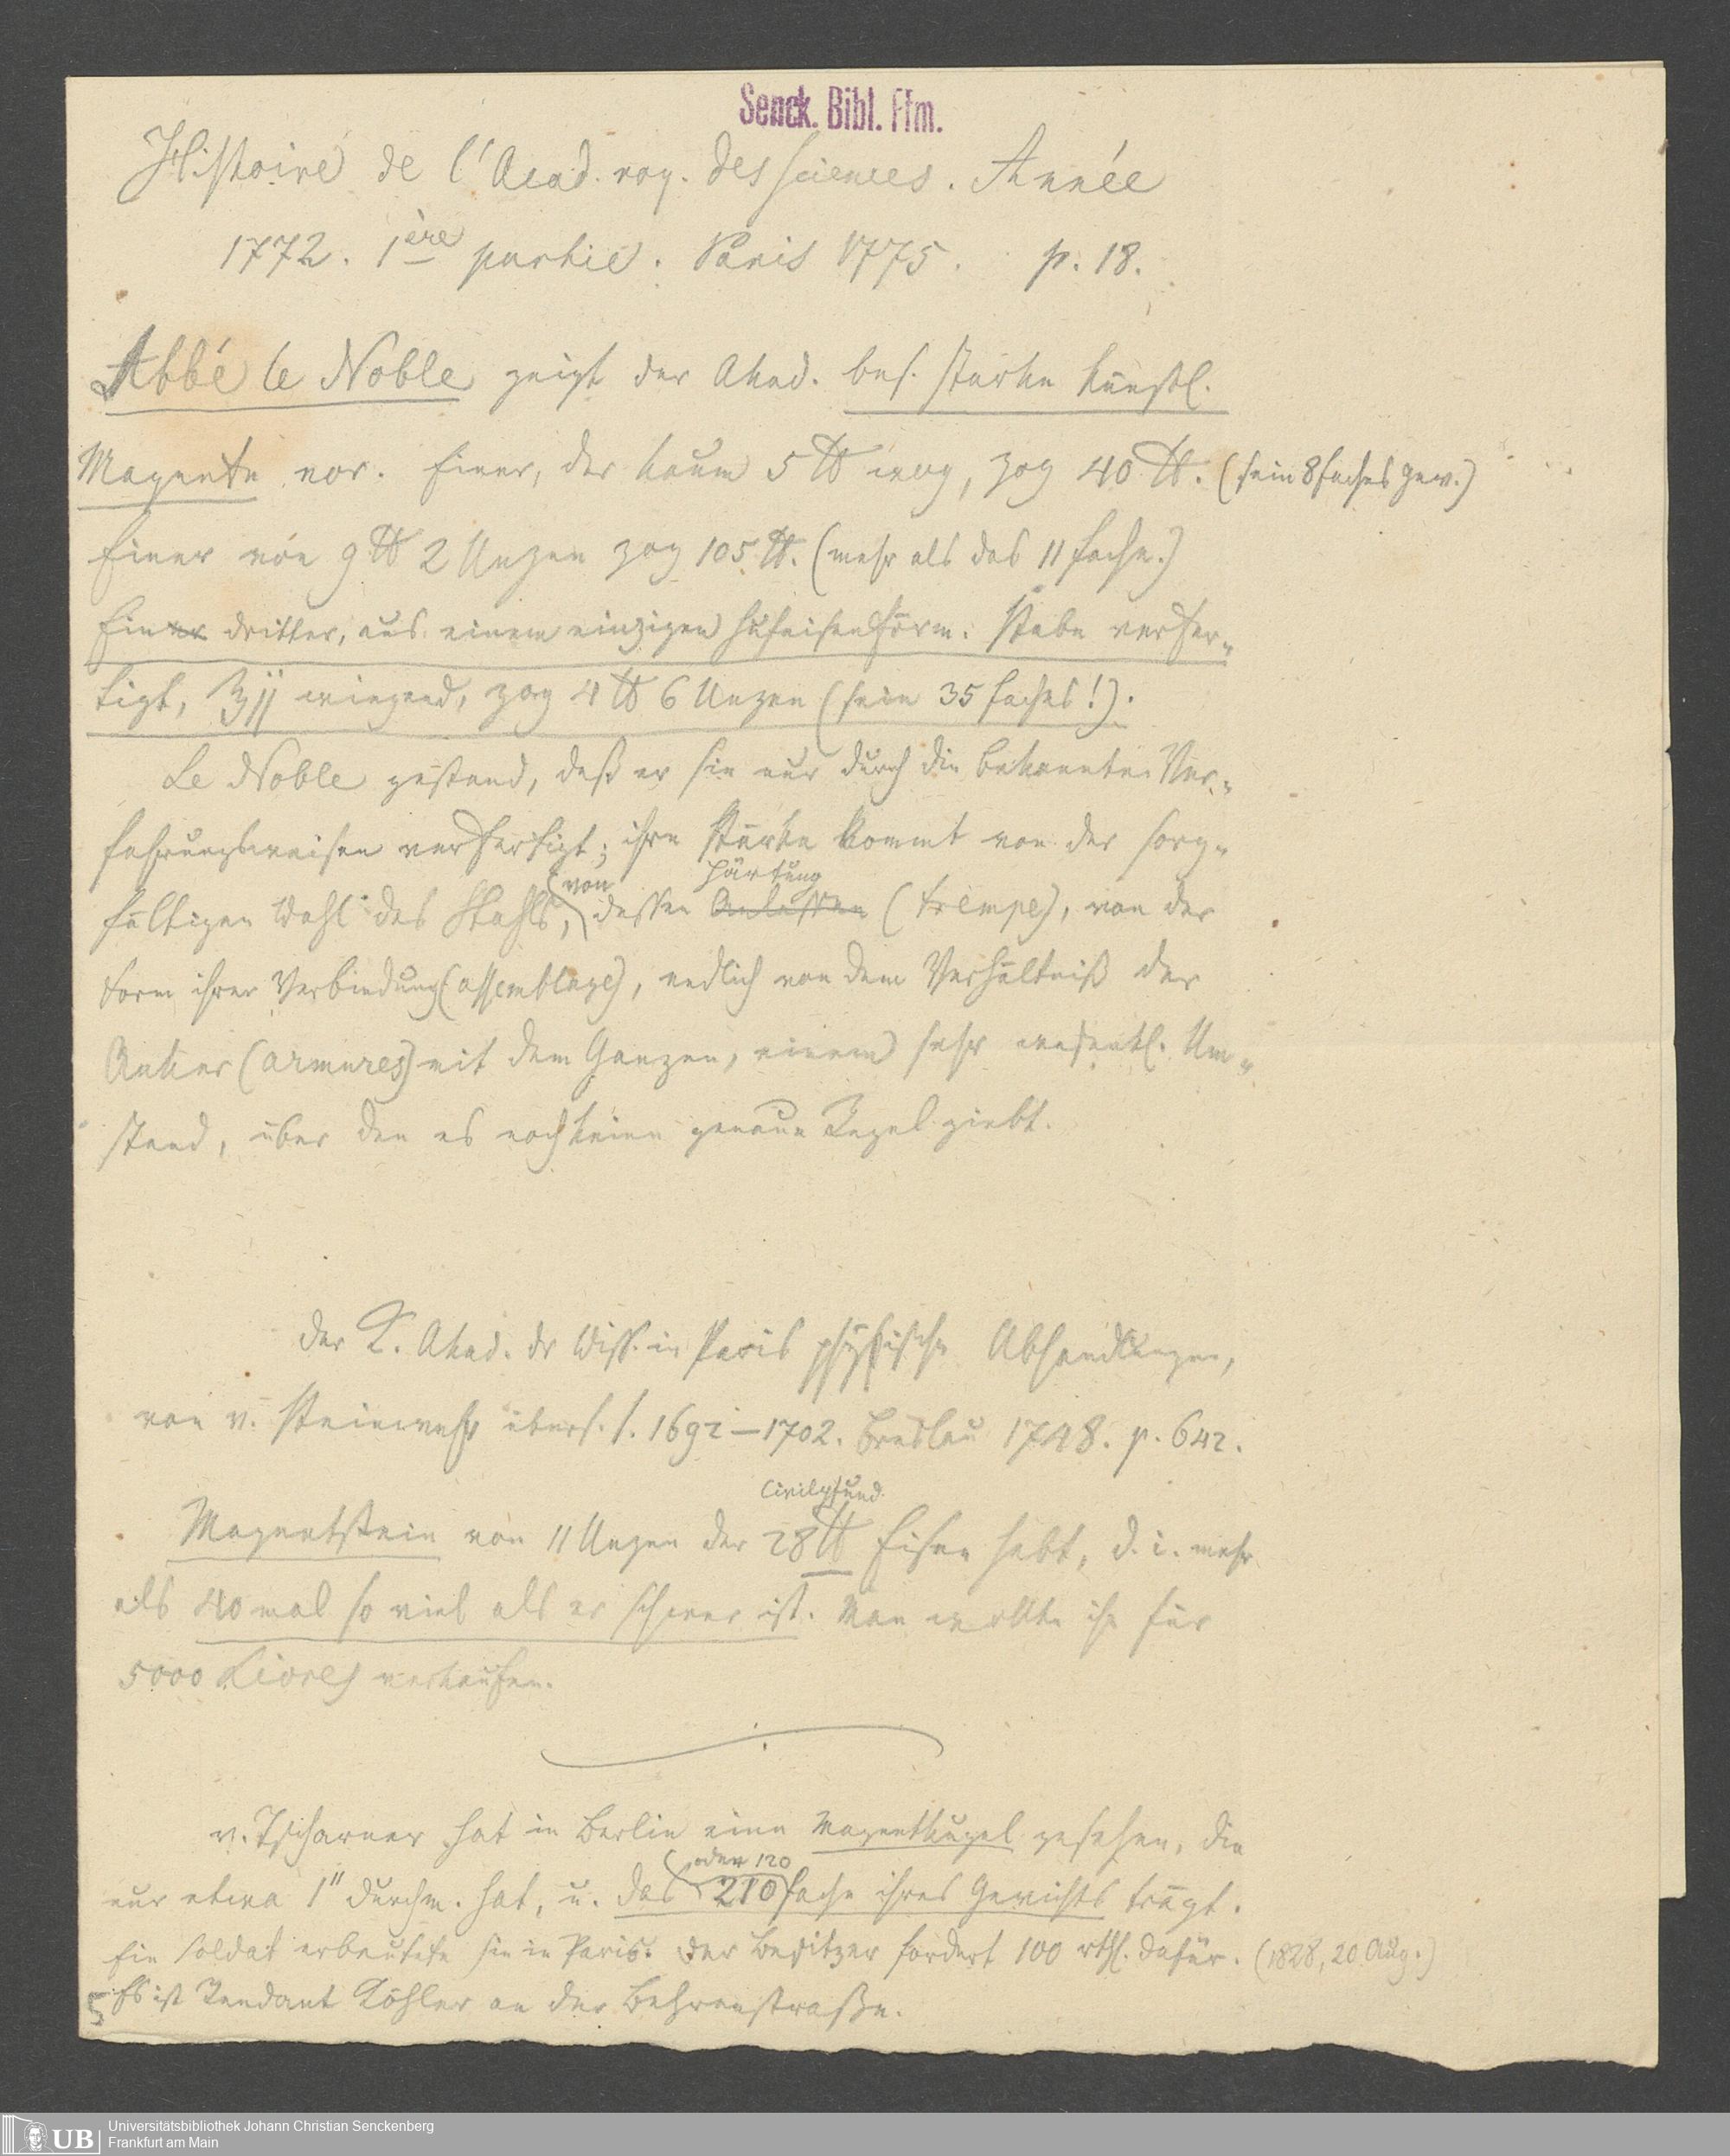 Senck. Bibl. Ffm.
Histoire de l'Acad. roy. des sciences. Année
1772. 1ère partie. Paris 1775. p. 18.
Abbé le Noble zeigt der Akad. bes. starke künstl.
Magnete vor. Einer, der kaum 5 ℔ wog, zog 40 ℔. (sein 8faches Gew.)
Einer von 9 ℔ 2 Unzen zog 105 ℔. (mehr als das 11 fache.)
Ein dritter, aus einem einzigen hufeisenförm. Stabe verfer-
tigt, ℥jj wiegend, zog 4 ℔ 6 Unzen (sein 35 faches!).
Le Noble gestand, daß er sie nur durch die bekannten Ver-
fahrungsweisen verfertigt; ihre Stärke kommt von der sorg-
von Härtung
fältigen Wahl des Stahls, dessen Anlassen (trempe), von der
Form ihrer Verbindung (assemblage), endlich von dem Verhältniß der
Anker (armures) mit dem Ganzen, einem sehr wesentl. Um-
stand, über den es noch keine genaue Regel giebt.
Der K. Akad. dr Wiss. in Paris physische Abhandlungen,
von v. Steinwehr übers. 1692–1702. Breslau 1748. p. 642.
Civilpfund.
Magnetstein von 11 Unzen der 28 ℔ Eisen hebt, d. i. mehr
als 40 mal so viel als er schwer ist. Man wollte ihn für
5000 Livres verkaufen.
v. Tscharner hat in Berlin eine Magnetkugel gesehen, die
oder 120
nur etwa 1" Durchm. hat, u. das 210 fache ihres Gewichts trägt.
Ein Soldat erbeutete sie in Paris. Der Besitzer fordert 100 rthl. dafür. (1828, 20 Aug.)
Es ist Rendant Köhler an der Behrenstraße.
5
UB
Universitätsbibliothek Johann Christian Senckenberg
Frankfurt am Main